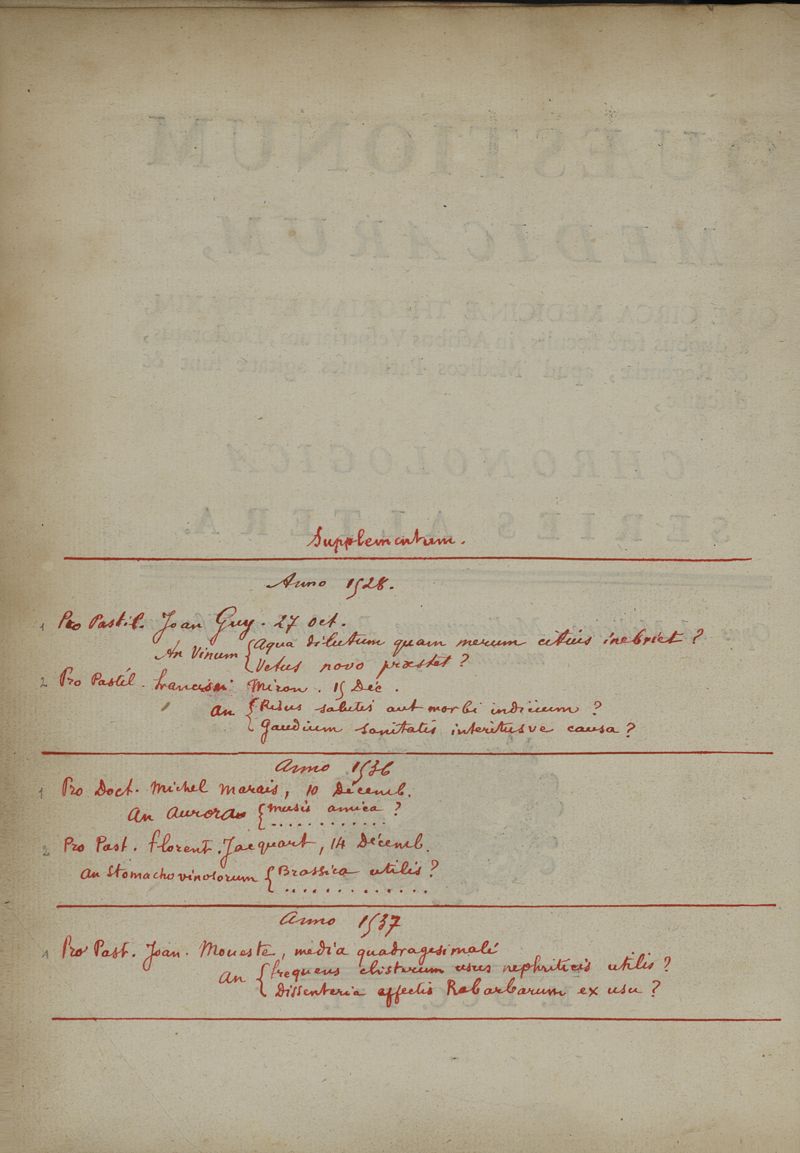 Supplementum.
Anno 1528.
1 Pro Pastil. Joan Guy. 27 oct.
An Vinum { Aqua dilutum quam merum citius inebriet ?
Vetus novo præstet ?
2 Pro Pastil. francisci Miron. 15 Déc.
An { Risus salutis aut morbi indicium ?
Gaudium sanitatis interitusve causa ?
Anno 1536
1 Pro Doct. Michel Marais, 10 Décemb.
An aurora { musis amica ?
. . . . . . . . . . . .
2 Pro Past. florent. Jacquart, 14 Décemb.
An Stomacho vinosorum { Brassica utilis ?
. . . . . . . . . . . .
Anno 1537
1 Pro Past. Joan. Moueste, media quadragesimali
An { frequens clisterum usus nephriticis utilis ?
Dissenteria affectis Rabarbarum ex usu ?